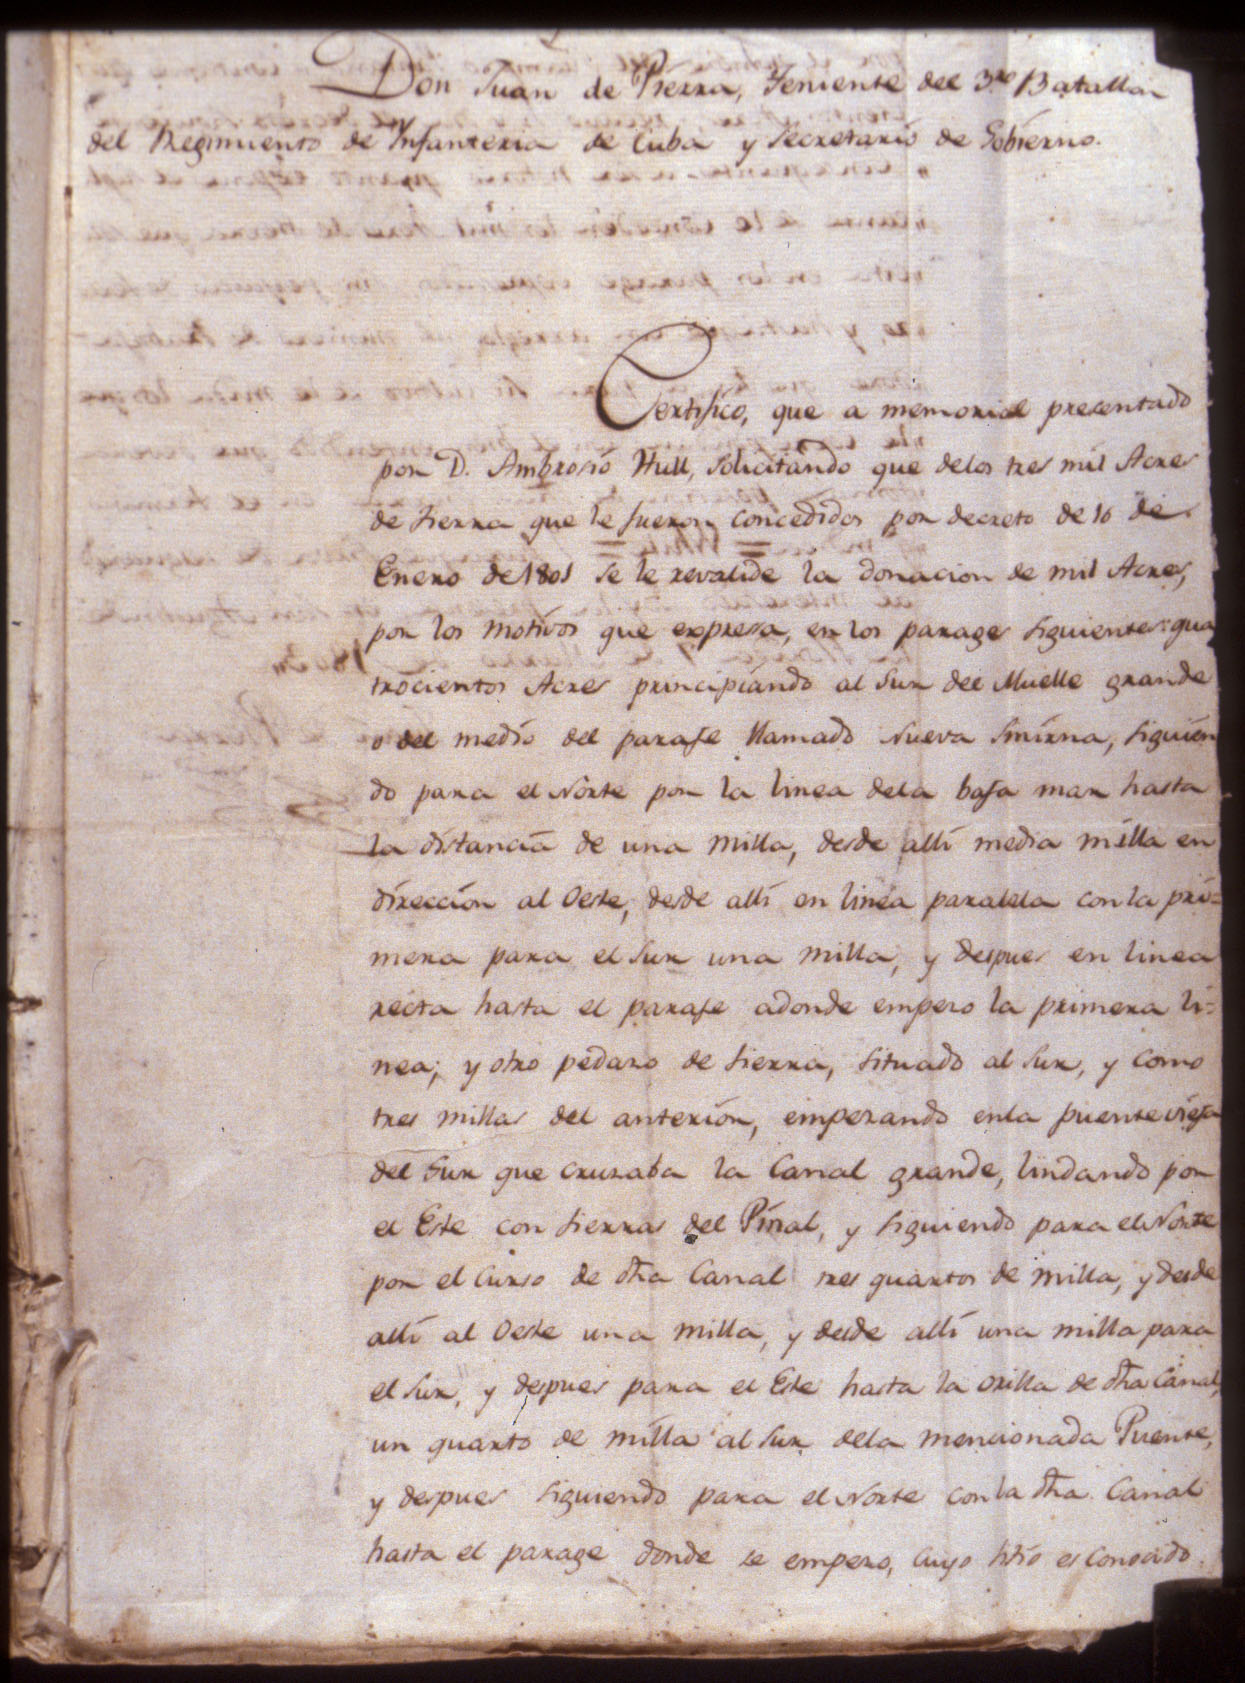 Don Juan de Pierra, Teniente del 3.ro Batallon
del Regimiento de Ynfanteria de Cuba y Secretario de Gobierno.
Certifico, que a memorial presentado
por D. Ambrosio Hull, solicitando que delos tres mil Acres
de tierra que le fueron concedidos por decreto de 16 de
Enero de 1801 se le revalide la donacion de mil Acres,
por los motivos que expresa, en los parages siguientes: qua
trocientos Acres principiando al Sur del Muelle grande
o del medio del paraje llamado Nueva Smirna, siguien
do para el Norte por la linea dela baja mar hasta
la distancia de una milla, desde alli media milla en
direccion al Oeste, desde alli en linea paralela con la pri=
mera para el Sur una milla, y despues en linea
recta hasta el paraje adonde empezo la primera li=
nea; y otro pedazo de tierra, situado al Sur, y como
tres millas del anterior, empezando enla puente vieja
del Sur que cruzaba la Canal grande, lindando por
el Este con tierras del Pinal, y siguiendo para el Norte
por el Curso de dha Canal tres quartos de milla, y desde
alli al Oeste una milla, y desde alli una milla para
el Sur, y despues para el Este hasta la orilla de dha Canal,
un quarto de milla al Sur dela mencionada Puente,
y despues siguiendo para el Norte con la dha. Canal
hasta el parage donde se empezo, cuyo sitio es conocido